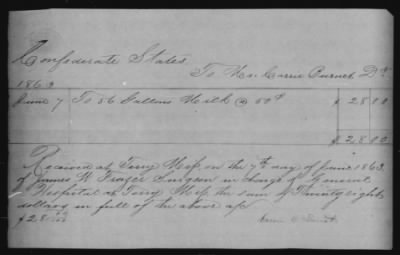 Confederate States.
To Mrs. Carrie Dr
1863
June 7 To 56 Gallons Milk @ 50¢ $ 28 00
$ 28 00
Received at Terry Miss, on the 7th day of June 1863,
of James H. Frazer Surgeon in charge of General
Hospital at Terry Miss the sum of Twenty eight
dollars in full of the above a/c
$28 00/100